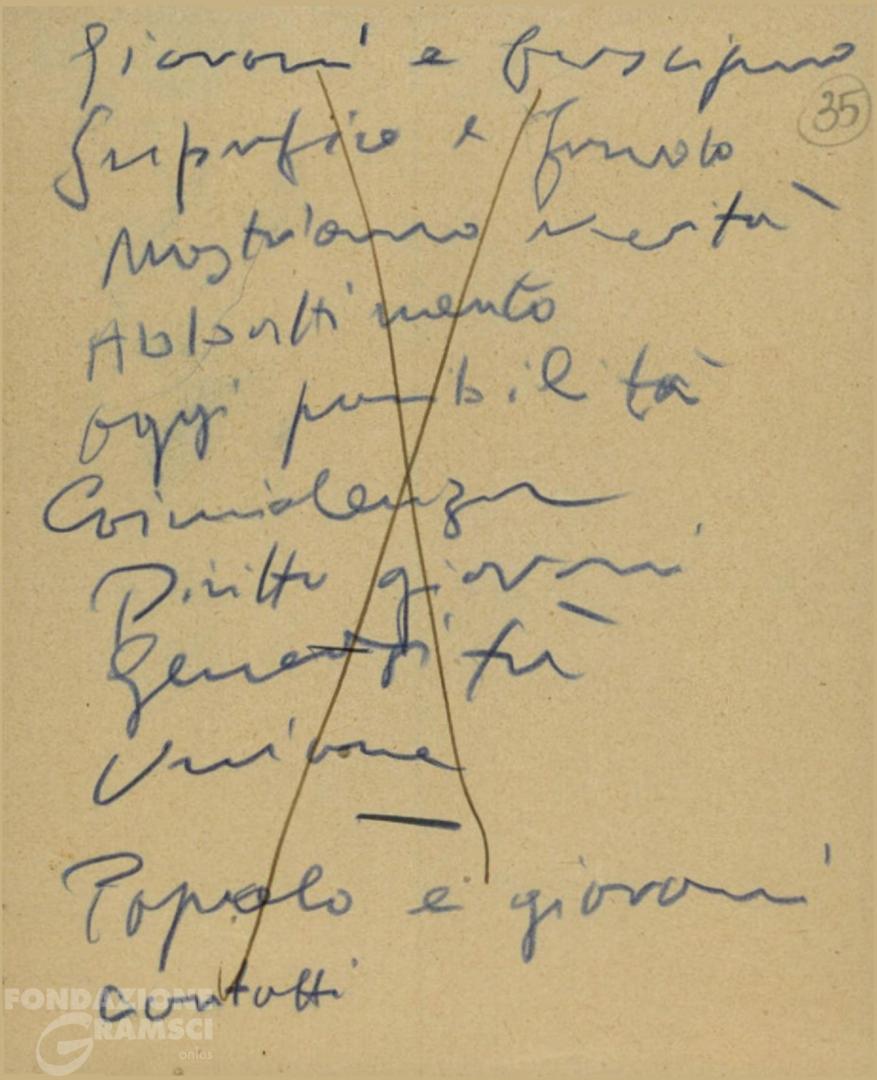 Giovani e fascismo
35
Superficie e fondo
Mostriamo verità
Abbattimento
oggi possibilità
Coincidenza
Diritto giovani
Generosità
Unione
Popolo e giovani
contatti
FONDAZIONE
GRAMSCI
onlus